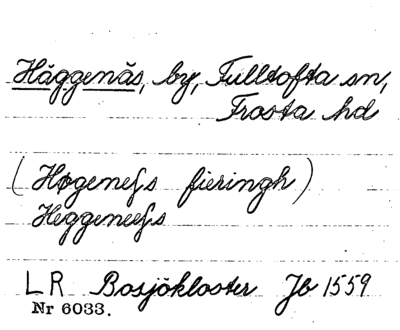 Häggenäs, by, Fulltofta sn,
Frosta hd
(Høgenefs fieringh)
Heggeneefs
LR Bosjökloster Jb 1559
Nr 6033.